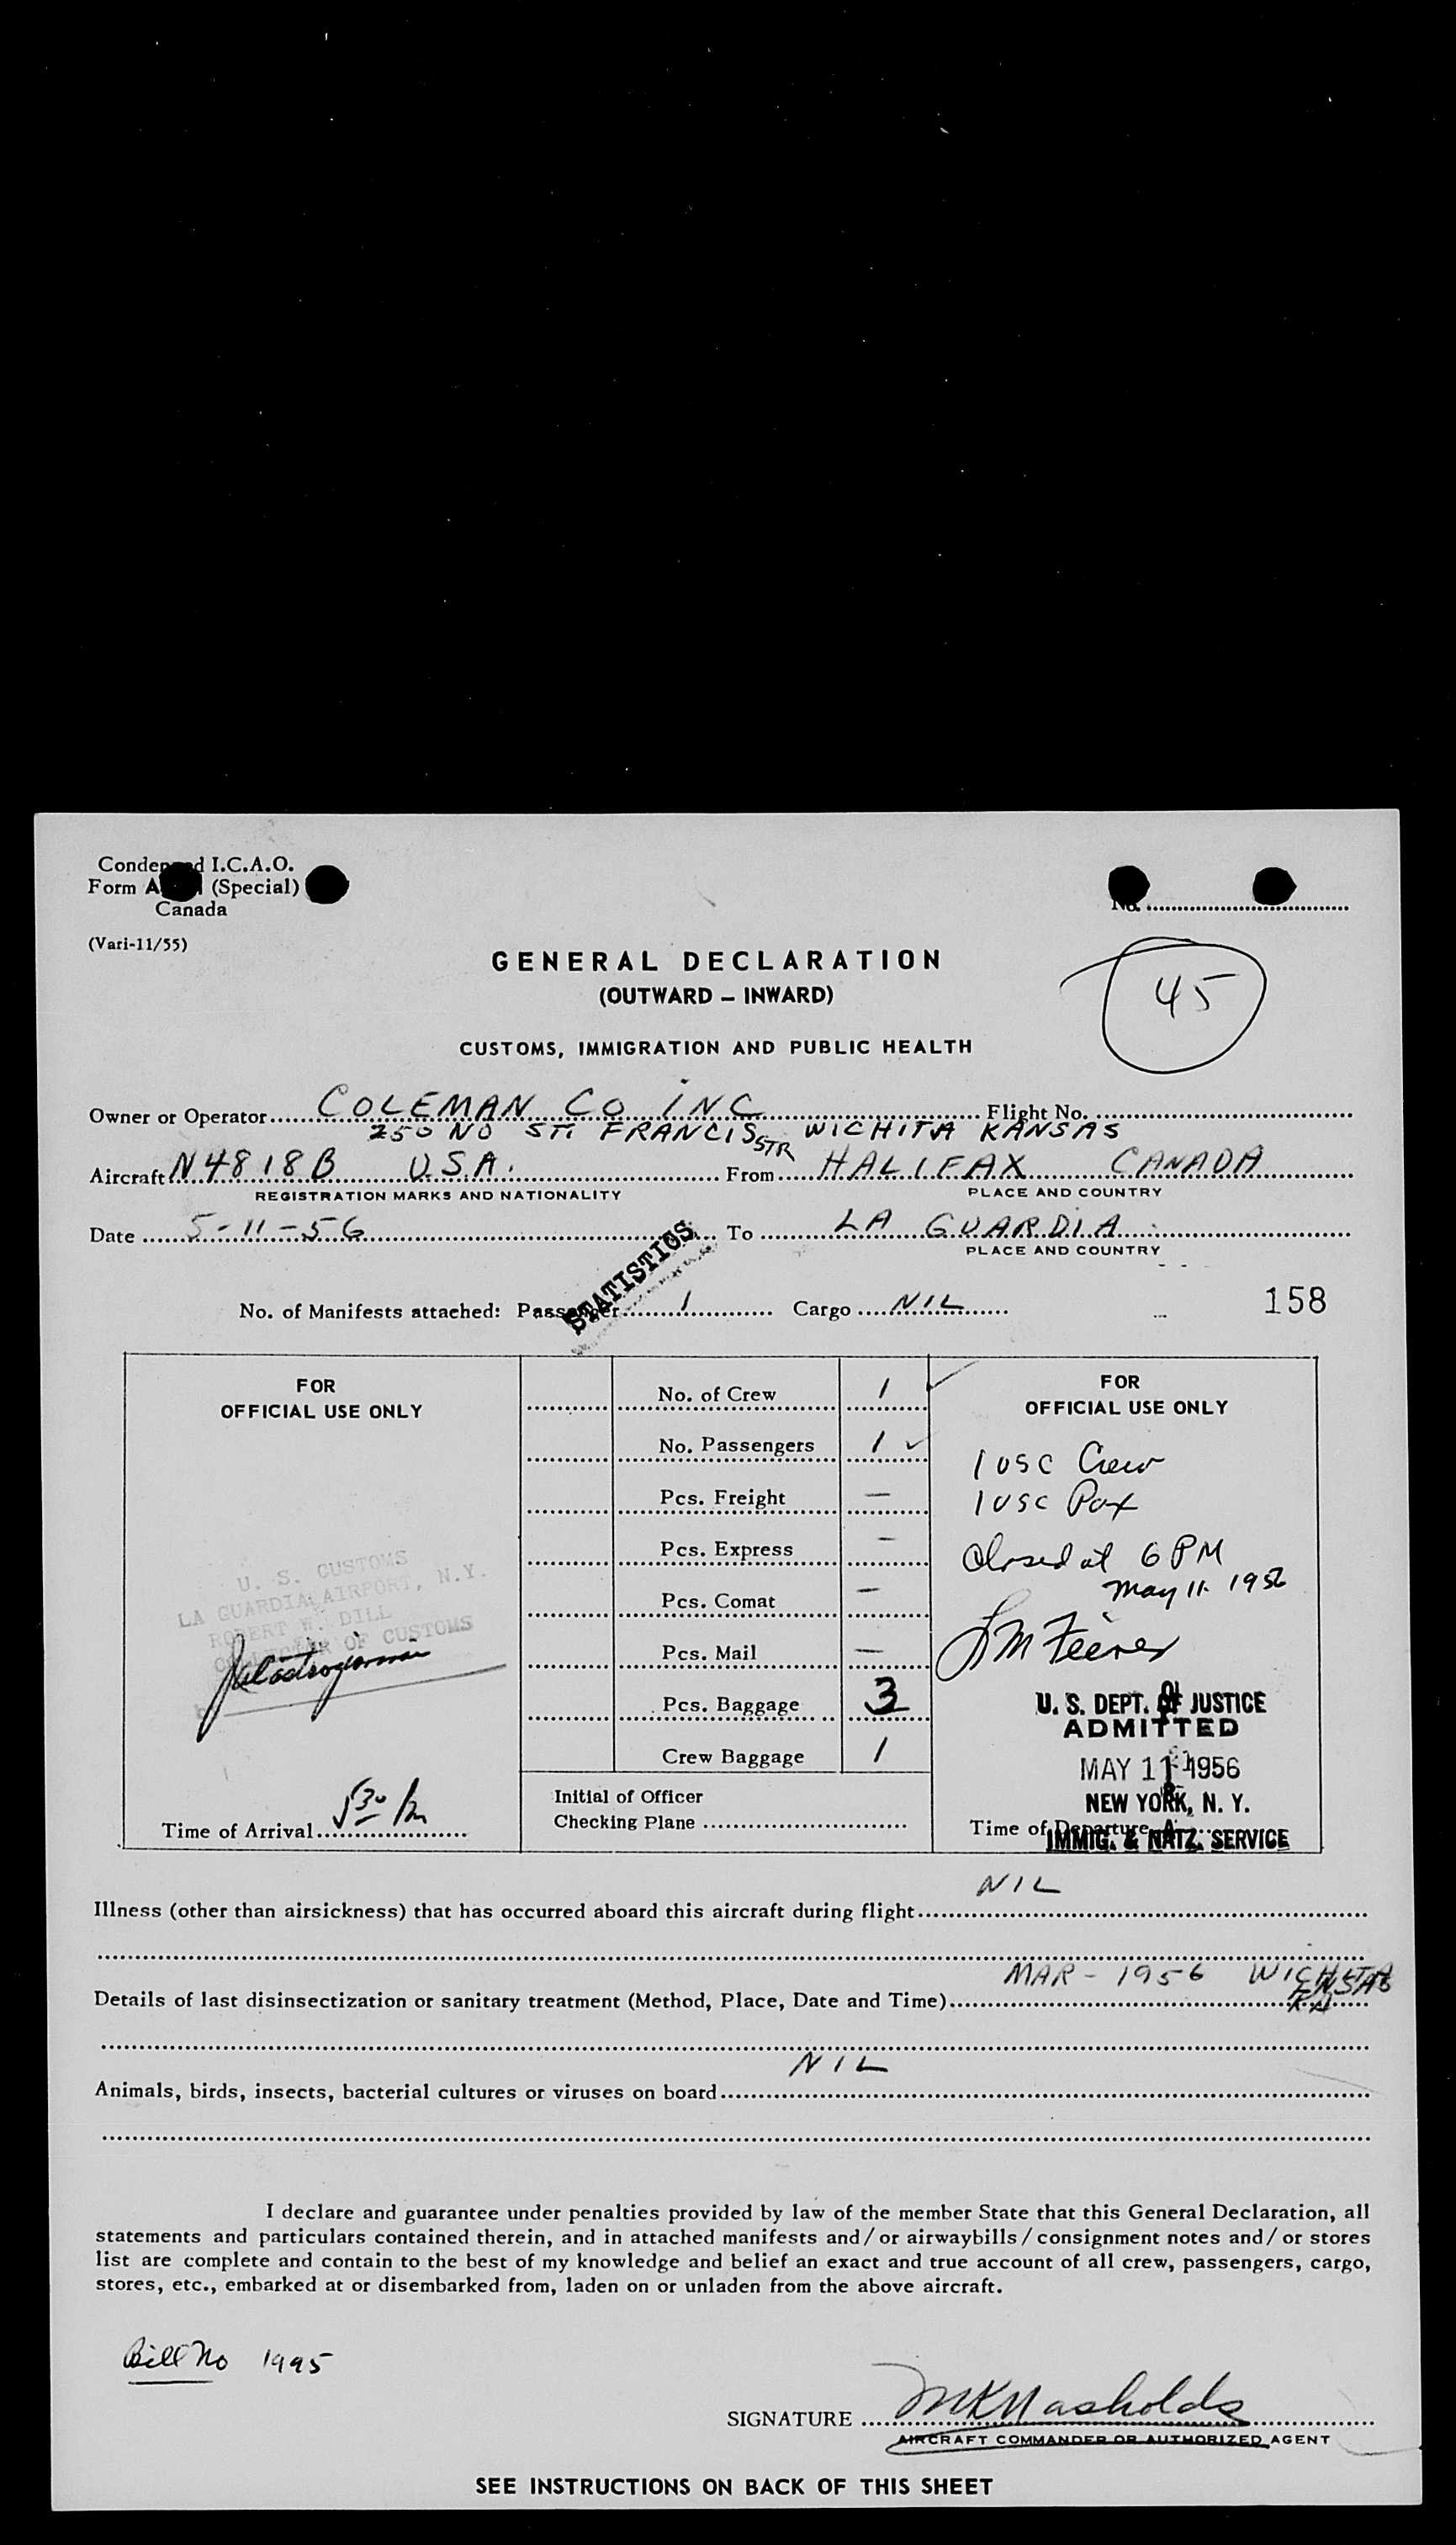 Condensed I.C.A.O.
Form A (Special)
Canada
(Vari-11/55)
No.
GENERAL DECLARATION
(OUTWARD – INWARD)
45
CUSTOMS, IMMIGRATION AND PUBLIC HEALTH
Owner or Operator COLEMAN CO INC Flight No.
250 NO ST. FRANCIS STR WICHITA KANSAS
Aircraft N4818B U.S.A. From HALIFAX CANADA
REGISTRATION MARKS AND NATIONALITY PLACE AND COUNTRY
Date 5-11-56 To LA GUARDIA
PLACE AND COUNTRY
STATISTICS
No. of Manifests attached: Passenger 1 Cargo NIL 158
FOR
OFFICIAL USE ONLY
U. S. CUSTOMS
LA GUARDIA AIRPORT, N.Y.
ROBERT W. DILL
COLLECTOR OF CUSTOMS
Time of Arrival 5 30
No. of Crew 1
No. Passengers 1
Pcs. Freight —
Pcs. Express —
Pcs. Comat —
Pcs. Mail —
Pcs. Baggage 3
Crew Baggage 1
Initial of Officer
Checking Plane
FOR
OFFICIAL USE ONLY
1 USC Crew
1 USC Pax
Closed at 6 PM
May 11 1956
U. S. DEPT. OF JUSTICE
ADMITTED
MAY 11 1956
NEW YORK, N. Y.
Time of Departure
IMMIG. & NATZ. SERVICE
NIL
Illness (other than airsickness) that has occurred aboard this aircraft during flight
MAR - 1956 WICHITA KANSAS
Details of last disinsectization or sanitary treatment (Method, Place, Date and Time)
NIL
Animals, birds, insects, bacterial cultures or viruses on board
I declare and guarantee under penalties provided by law of the member State that this General Declaration, all
statements and particulars contained therein, and in attached manifests and/or airwaybills/consignment notes and/or stores
list are complete and contain to the best of my knowledge and belief an exact and true account of all crew, passengers, cargo,
stores, etc., embarked at or disembarked from, laden on or unladen from the above aircraft.
Bill No 1995
SIGNATURE MKNasholds
AIRCRAFT COMMANDER OR AUTHORIZED AGENT
SEE INSTRUCTIONS ON BACK OF THIS SHEET